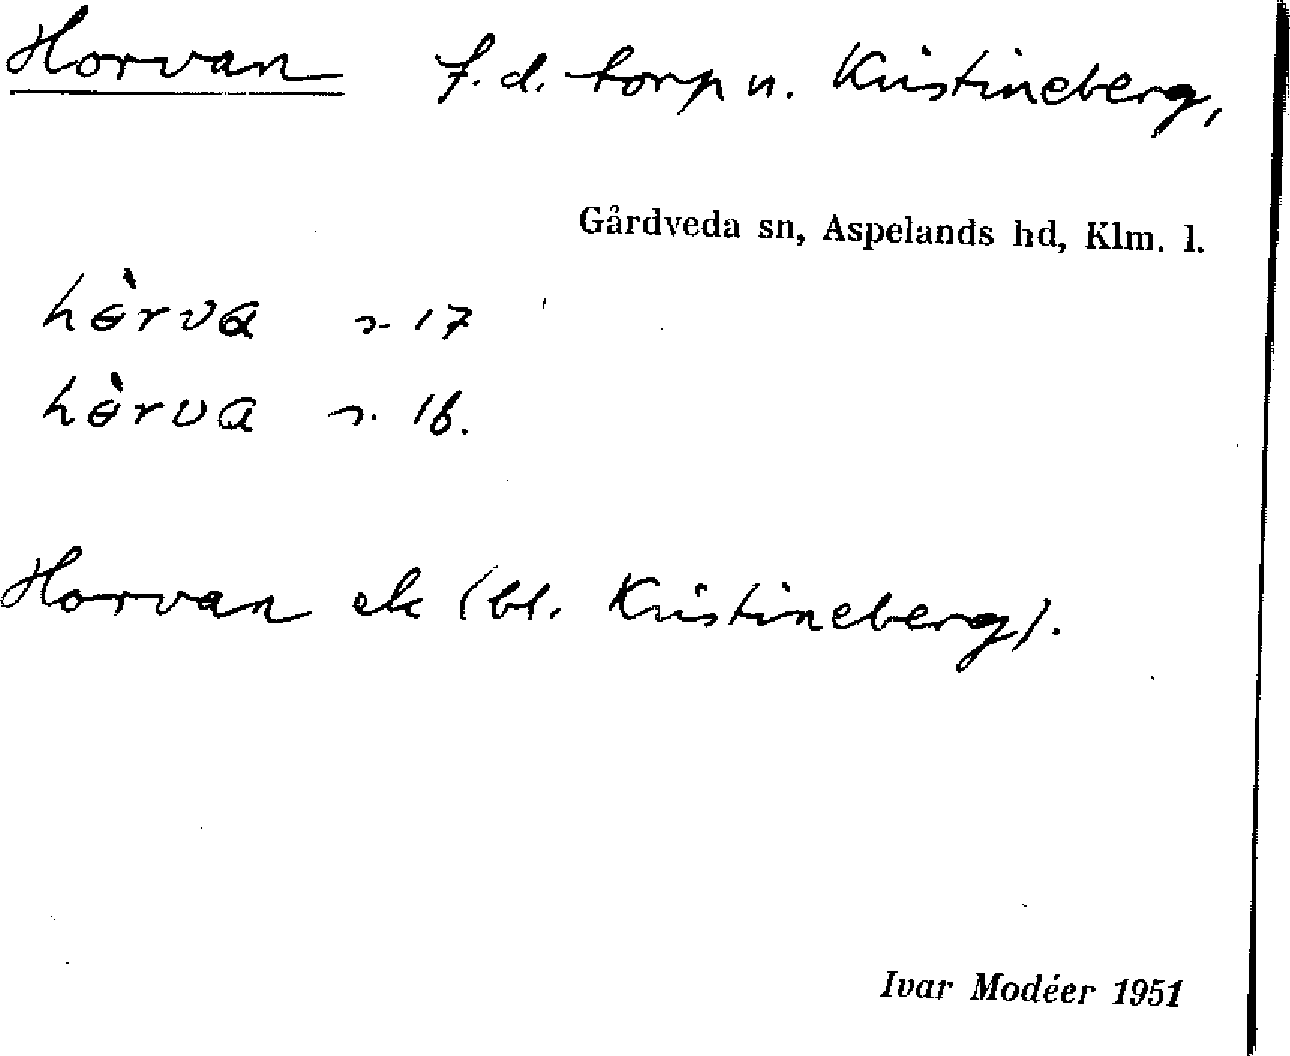 Horvan f.d. torp u. Kristineberg,
Gårdveda sn, Aspelands hd, Klm. l.
hɵ̀rva s. 17
hɵ̀rva s. 16.
Horvan ek (bl. Kristineberg).
Ivar Modéer 1951